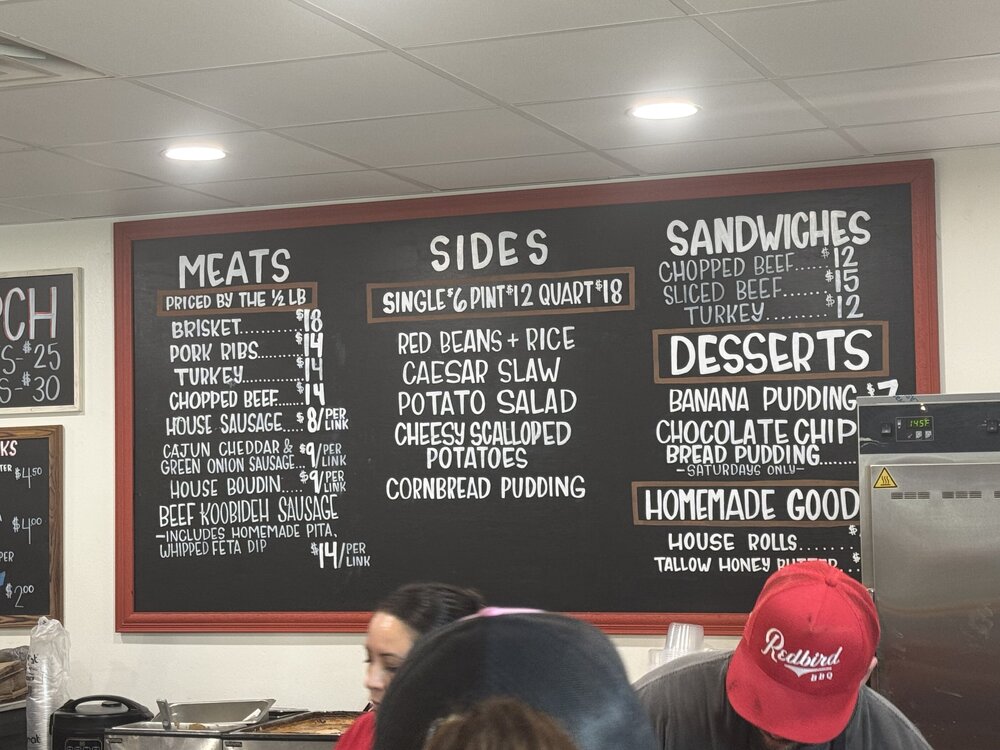 RCH
S-$25
S-$30
KS
$4.50
$4.00
$2.00
MEATS
PRICED BY THE ½ LB
BRISKET..........$18
PORK RIBS.......$14
TURKEY..........$14
CHOPPED BEEF.....$14
HOUSE SAUSAGE..$8/PER LINK
CAJUN CHEDDAR &
GREEN ONION SAUSAGE...$9/PER LINK
HOUSE BOUDIN....$9/PER LINK
BEEF KOOBIDEH SAUSAGE
-INCLUDES HOMEMADE PITA,
WHIPPED FETA DIP
$14/PER LINK
SIDES
SINGLE $6 PINT $12 QUART $18
RED BEANS + RICE
CAESAR SLAW
POTATO SALAD
CHEESY SCALLOPED
POTATOES
CORNBREAD PUDDING
SANDWICHES
CHOPPED BEEF.....$12
SLICED BEEF.......$15
TURKEY..........$12
DESSERTS
BANANA PUDDING $7
CHOCOLATE CHIP
BREAD PUDDING.......
-SATURDAYS ONLY-
HOMEMADE GOOD
HOUSE ROLLS.......$
TALLOW HONEY BUTTER..$
145F
Redbird
BBQ